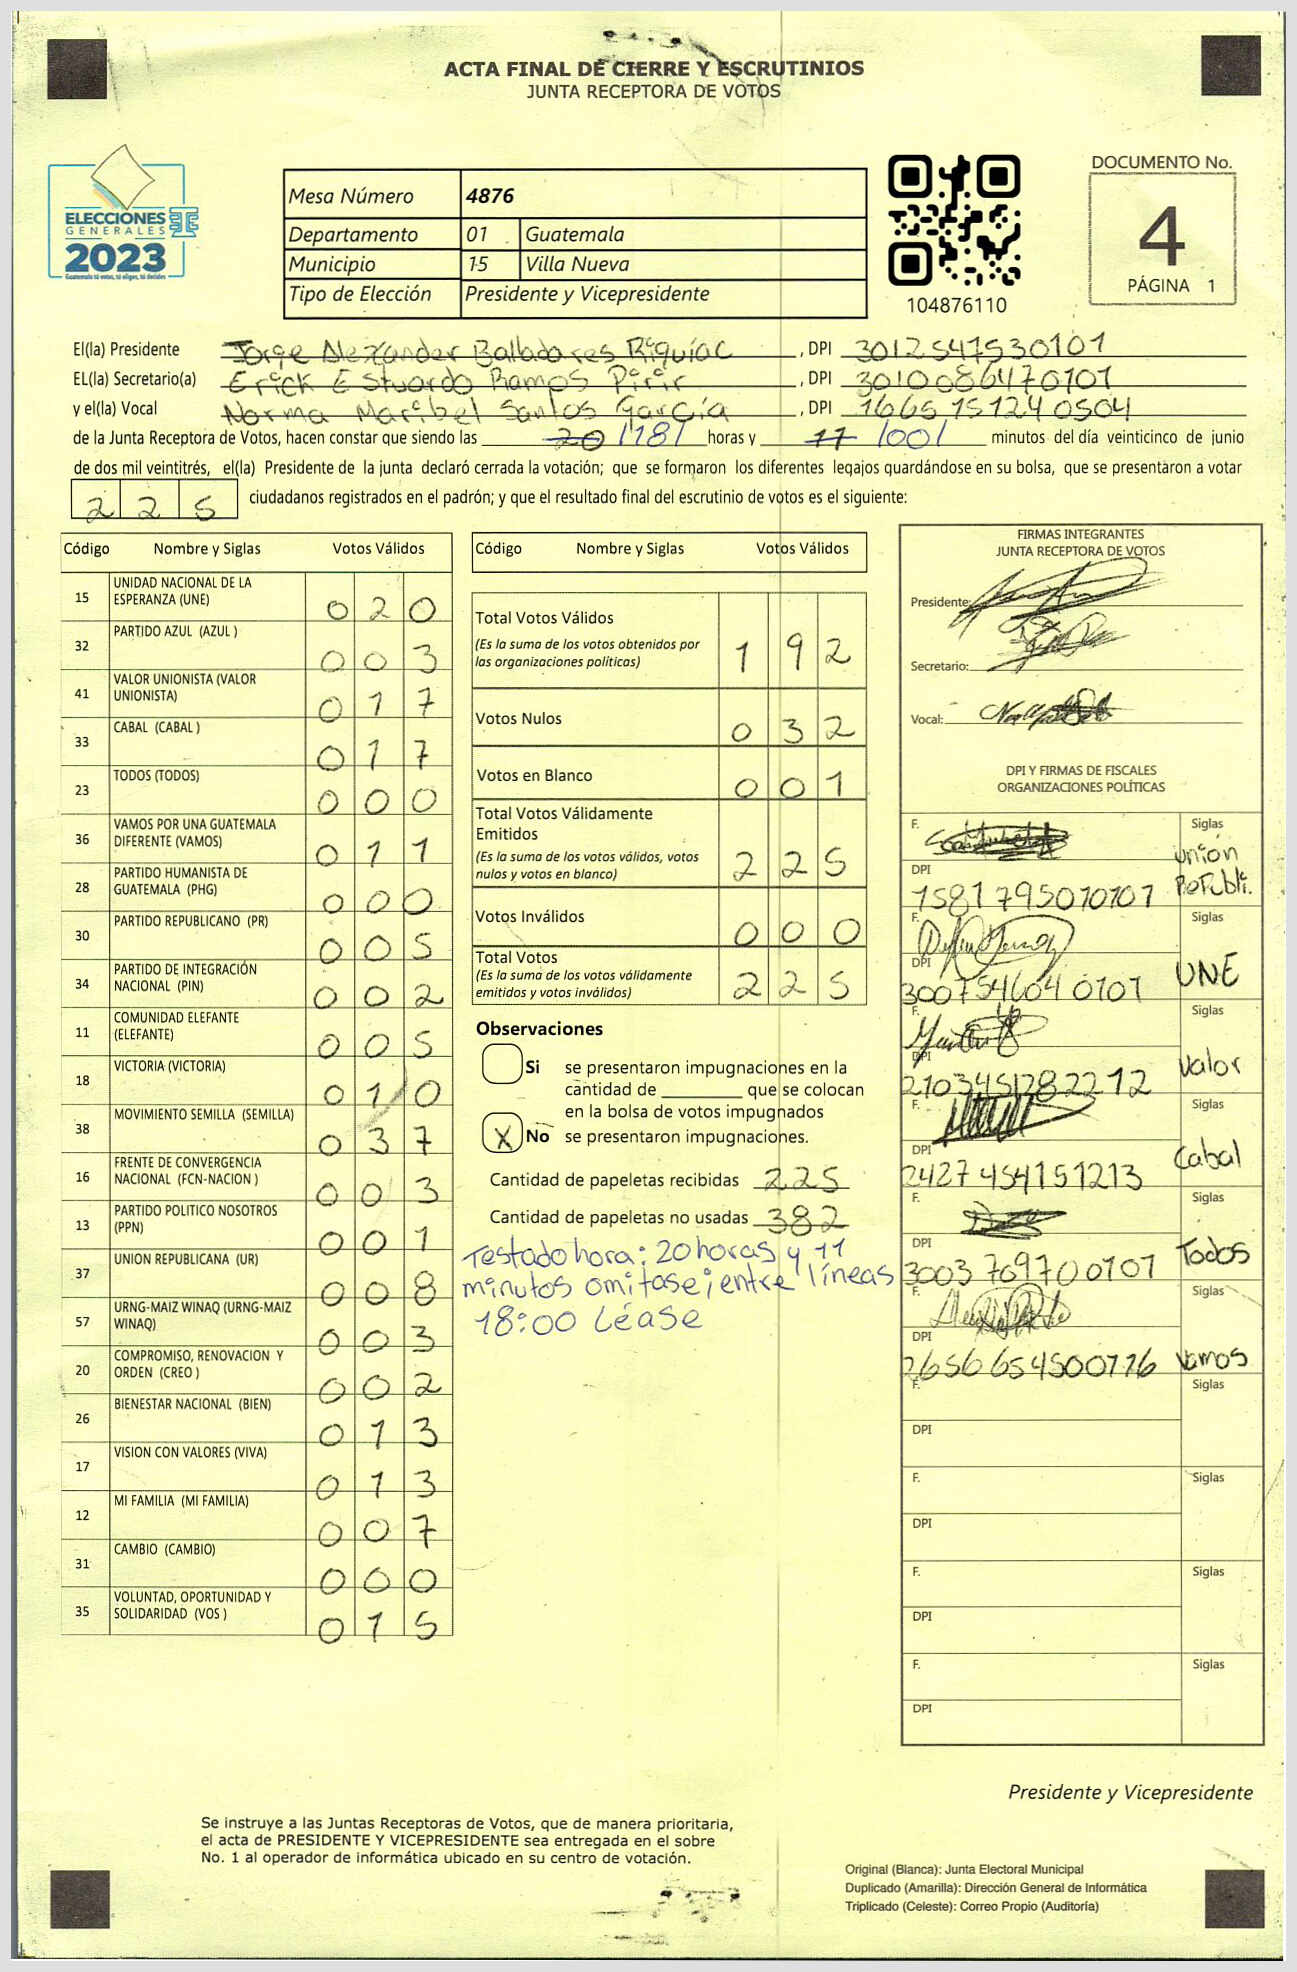 ACTA FINAL DE CIERRE Y ESCRUTINIOS
JUNTA RECEPTORA DE VOTOS
ELECCIONES
GENERALES
2023
Mesa Número 4876
Departamento 01 Guatemala
Municipio 15 Villa Nueva
Tipo de Elección Presidente y Vicepresidente
104876110
DOCUMENTO No.
4
PÁGINA 1
El(la) Presidente Jorge Alexander Balladares Riquiac, DPI 3012547530101
EL(la) Secretario(a) Erick Estuardo Ramos Pirir, DPI 3010086470101
y el(la) Vocal Norma Maribel Santos García, DPI 1665151240504
de la Junta Receptora de Votos, hacen constar que siendo las 20 /18/ horas y 11 /00/ minutos del día veinticinco de junio
de dos mil veintitrés, el(la) Presidente de la junta declaró cerrada la votación; que se formaron los diferentes legajos guardándose en su bolsa, que se presentaron a votar
225 ciudadanos registrados en el padrón; y que el resultado final del escrutinio de votos es el siguiente:
Código Nombre y Siglas Votos Válidos
15 UNIDAD NACIONAL DE LA ESPERANZA (UNE) 020
32 PARTIDO AZUL (AZUL ) 003
41 VALOR UNIONISTA (VALOR UNIONISTA) 017
33 CABAL (CABAL ) 017
23 TODOS (TODOS) 000
36 VAMOS POR UNA GUATEMALA DIFERENTE (VAMOS) 011
28 PARTIDO HUMANISTA DE GUATEMALA (PHG) 000
30 PARTIDO REPUBLICANO (PR) 005
34 PARTIDO DE INTEGRACIÓN NACIONAL (PIN) 002
11 COMUNIDAD ELEFANTE (ELEFANTE) 005
18 VICTORIA (VICTORIA) 010
38 MOVIMIENTO SEMILLA (SEMILLA) 037
16 FRENTE DE CONVERGENCIA NACIONAL (FCN-NACION ) 003
13 PARTIDO POLITICO NOSOTROS (PPN) 001
37 UNION REPUBLICANA (UR) 008
57 URNG-MAIZ WINAQ (URNG-MAIZ WINAQ) 003
20 COMPROMISO, RENOVACION Y ORDEN (CREO ) 002
26 BIENESTAR NACIONAL (BIEN) 013
17 VISION CON VALORES (VIVA) 013
12 MI FAMILIA (MI FAMILIA) 007
31 CAMBIO (CAMBIO) 000
35 VOLUNTAD, OPORTUNIDAD Y SOLIDARIDAD (VOS ) 015
Código Nombre y Siglas Votos Válidos
Total Votos Válidos 192
(Es la suma de los votos obtenidos por
las organizaciones políticas)
Votos Nulos 032
Votos en Blanco 001
Total Votos Válidamente
Emitidos 225
(Es la suma de los votos válidos, votos
nulos y votos en blanco)
Votos Inválidos 000
Total Votos 225
(Es la suma de los votos válidamente
emitidos y votos inválidos)
Observaciones
Si se presentaron impugnaciones en la
cantidad de ________ que se colocan
en la bolsa de votos impugnados
X No se presentaron impugnaciones.
Cantidad de papeletas recibidas 225
Cantidad de papeletas no usadas 382
Testado hora: 20 horas y 11
minutos omitase; entre líneas
18:00 Léase
FIRMAS INTEGRANTES
JUNTA RECEPTORA DE VOTOS
Presidente:
Secretario:
Vocal:
DPI Y FIRMAS DE FISCALES
ORGANIZACIONES POLÍTICAS
F. Siglas
Unión
Republi.
DPI
1581795010101
F. Siglas
DPI UNE
3007546040101
F. Siglas
DPI Valor
2103451282212
F. Siglas
DPI Cabal
2427454151213
F. Siglas
DPI Todos
3003769700101
F. Siglas
DPI
2656654500116 Vamos
F. Siglas
DPI
F. Siglas
DPI
F. Siglas
DPI
F. Siglas
DPI
Presidente y Vicepresidente
Se instruye a las Juntas Receptoras de Votos, que de manera prioritaria,
el acta de PRESIDENTE Y VICEPRESIDENTE sea entregada en el sobre
No. 1 al operador de informática ubicado en su centro de votación.
Original (Blanca): Junta Electoral Municipal
Duplicado (Amarilla): Dirección General de Informática
Triplicado (Celeste): Correo Propio (Auditoría)